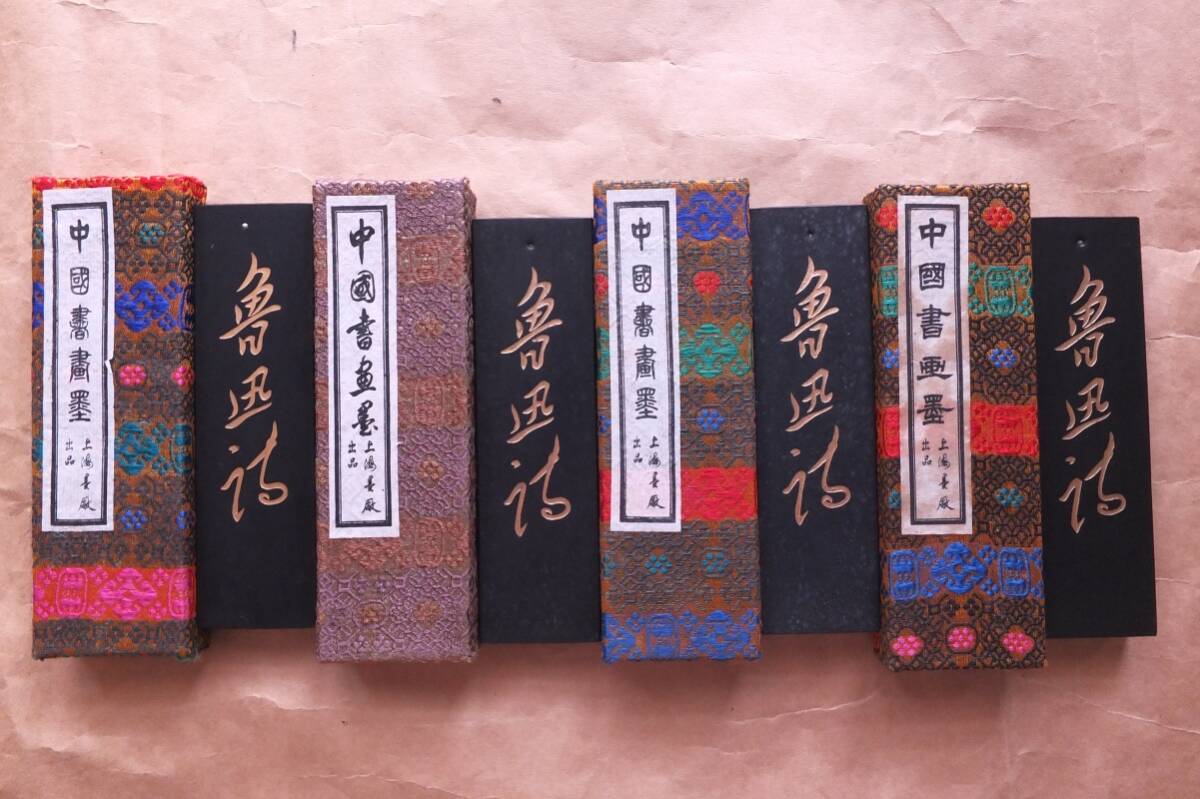 中國書畫墨
上海墨厰
出品
魯迅詩
中國書画墨
上海墨厰
出品
魯迅詩
中國書畫墨
上海墨厰
出品
魯迅詩
中國書画墨
上海墨厰
出品
魯迅詩